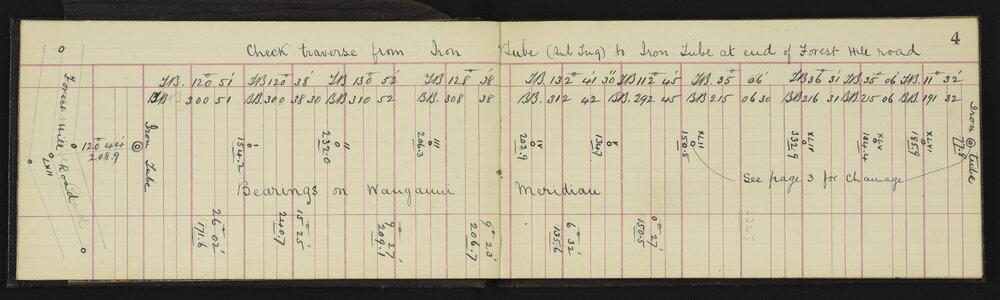 4
Check traverse from Iron Tube (Sub Trig) to Iron Tube at end of Forest Hill road
F.B. 120° 51' F.B. 120° 38' F.B. 130° 52' F.B. 128° 38' F.B. 132° 41' 30 F.B. 112° 45' F.B. 35° 06' F.B. 36° 31 F.B. 35° 06 F.B. 11° 32'
B.B. 300 51 B.B. 300 38 30 B.B. 310 52 B.B. 308 38 B.B. 312 42 B.B. 292 45 B.B. 215 06 30 B.B. 216 31 B.B. 215 06 B.B. 191 32
Forest Hill Road
LXII
120° 44'
208.9
Iron Tube
154.2 I
232.0 II
206.3 III
203.9 IV
134.9 V
150.5 XLII
332.9 XLIV
104.4 XLV
185.9 XLVI
77.8 Iron tube
See page 3 for Chainage
Bearings on Wanganui Meridian
26° 02'
171.6
15° 25'
240.7
9° 27'
209.1
9° 23'
206.7
6° 32'
135.6
0° 27'
150.5